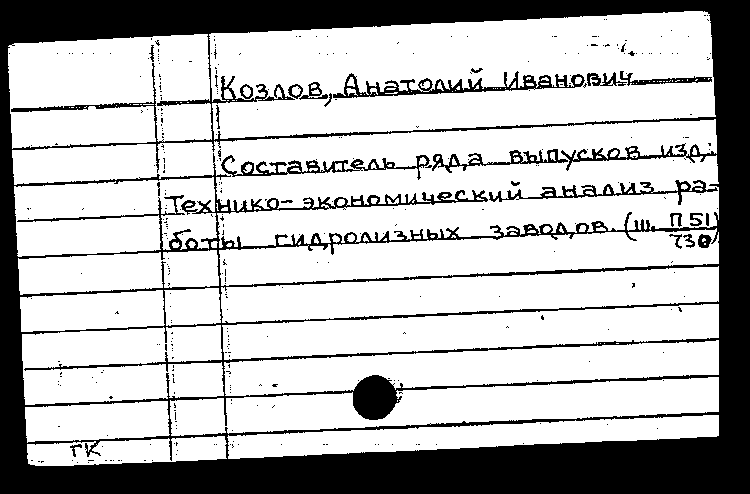 Козлов, Анатолий Иванович
Составитель ряда выпусков изд.:
Технико-экономический анализ ра-
боты гидролизных заводов. (ш. П51/730)
ГК